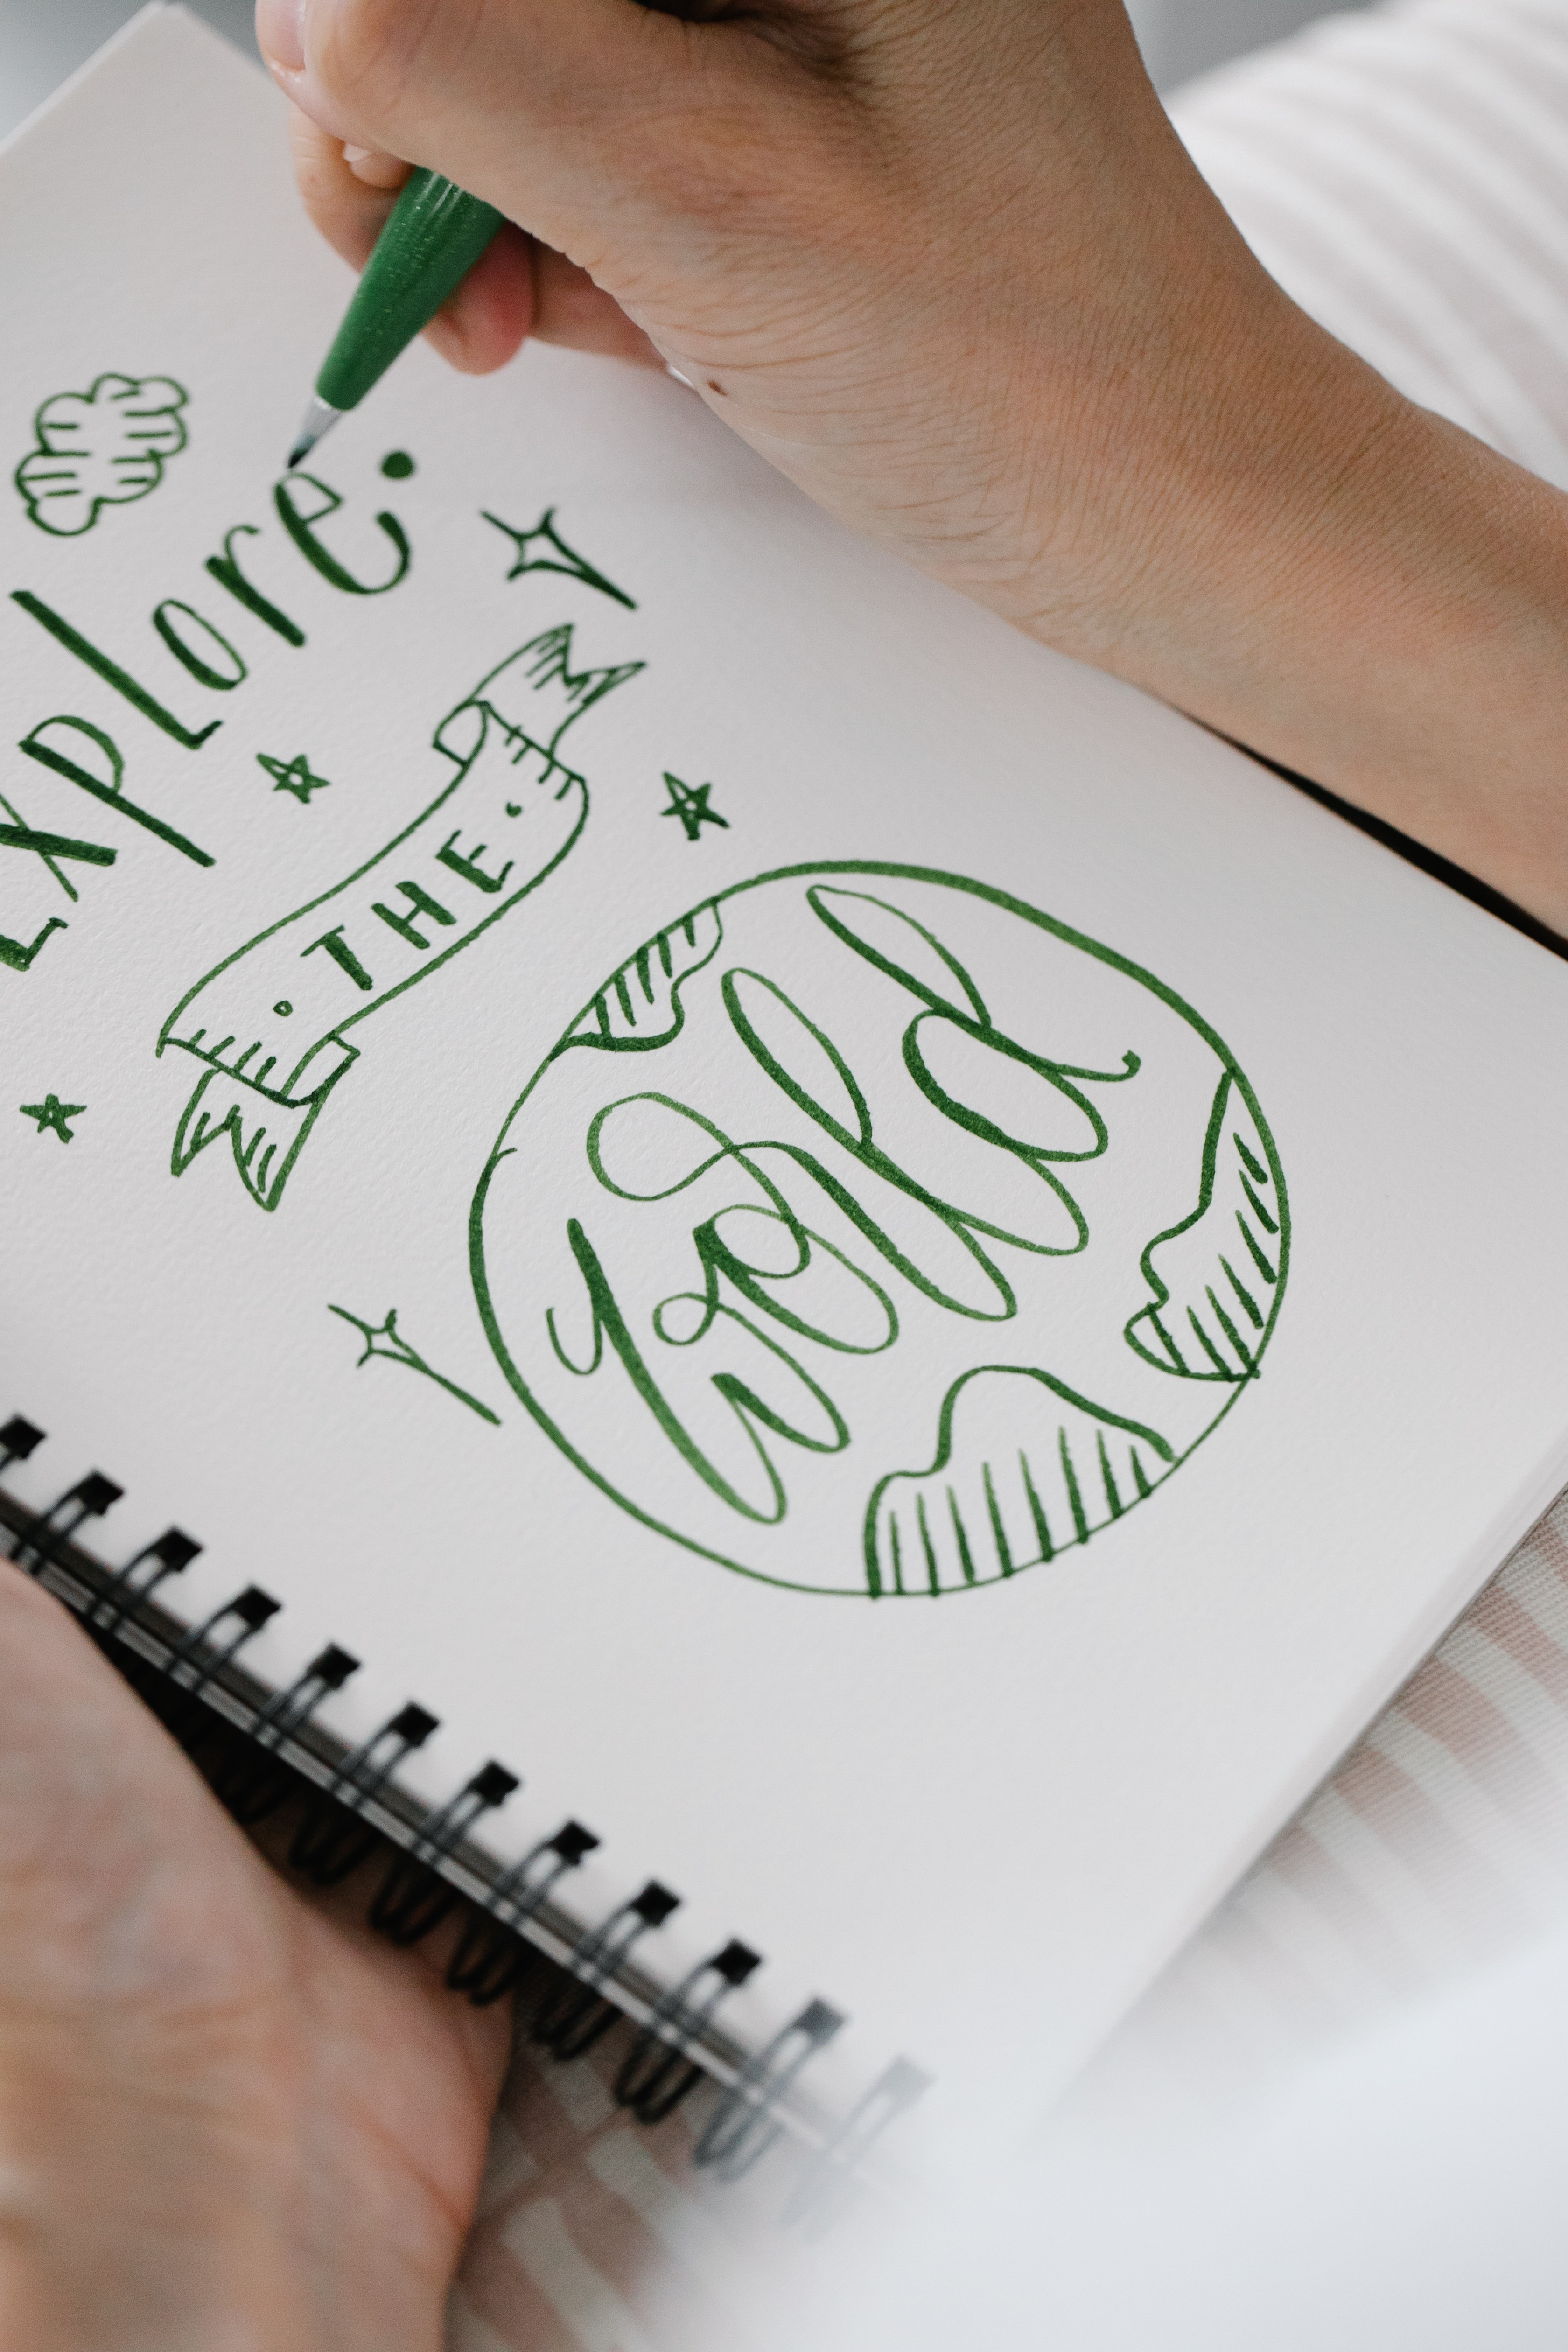 Explore.
• THE •
World